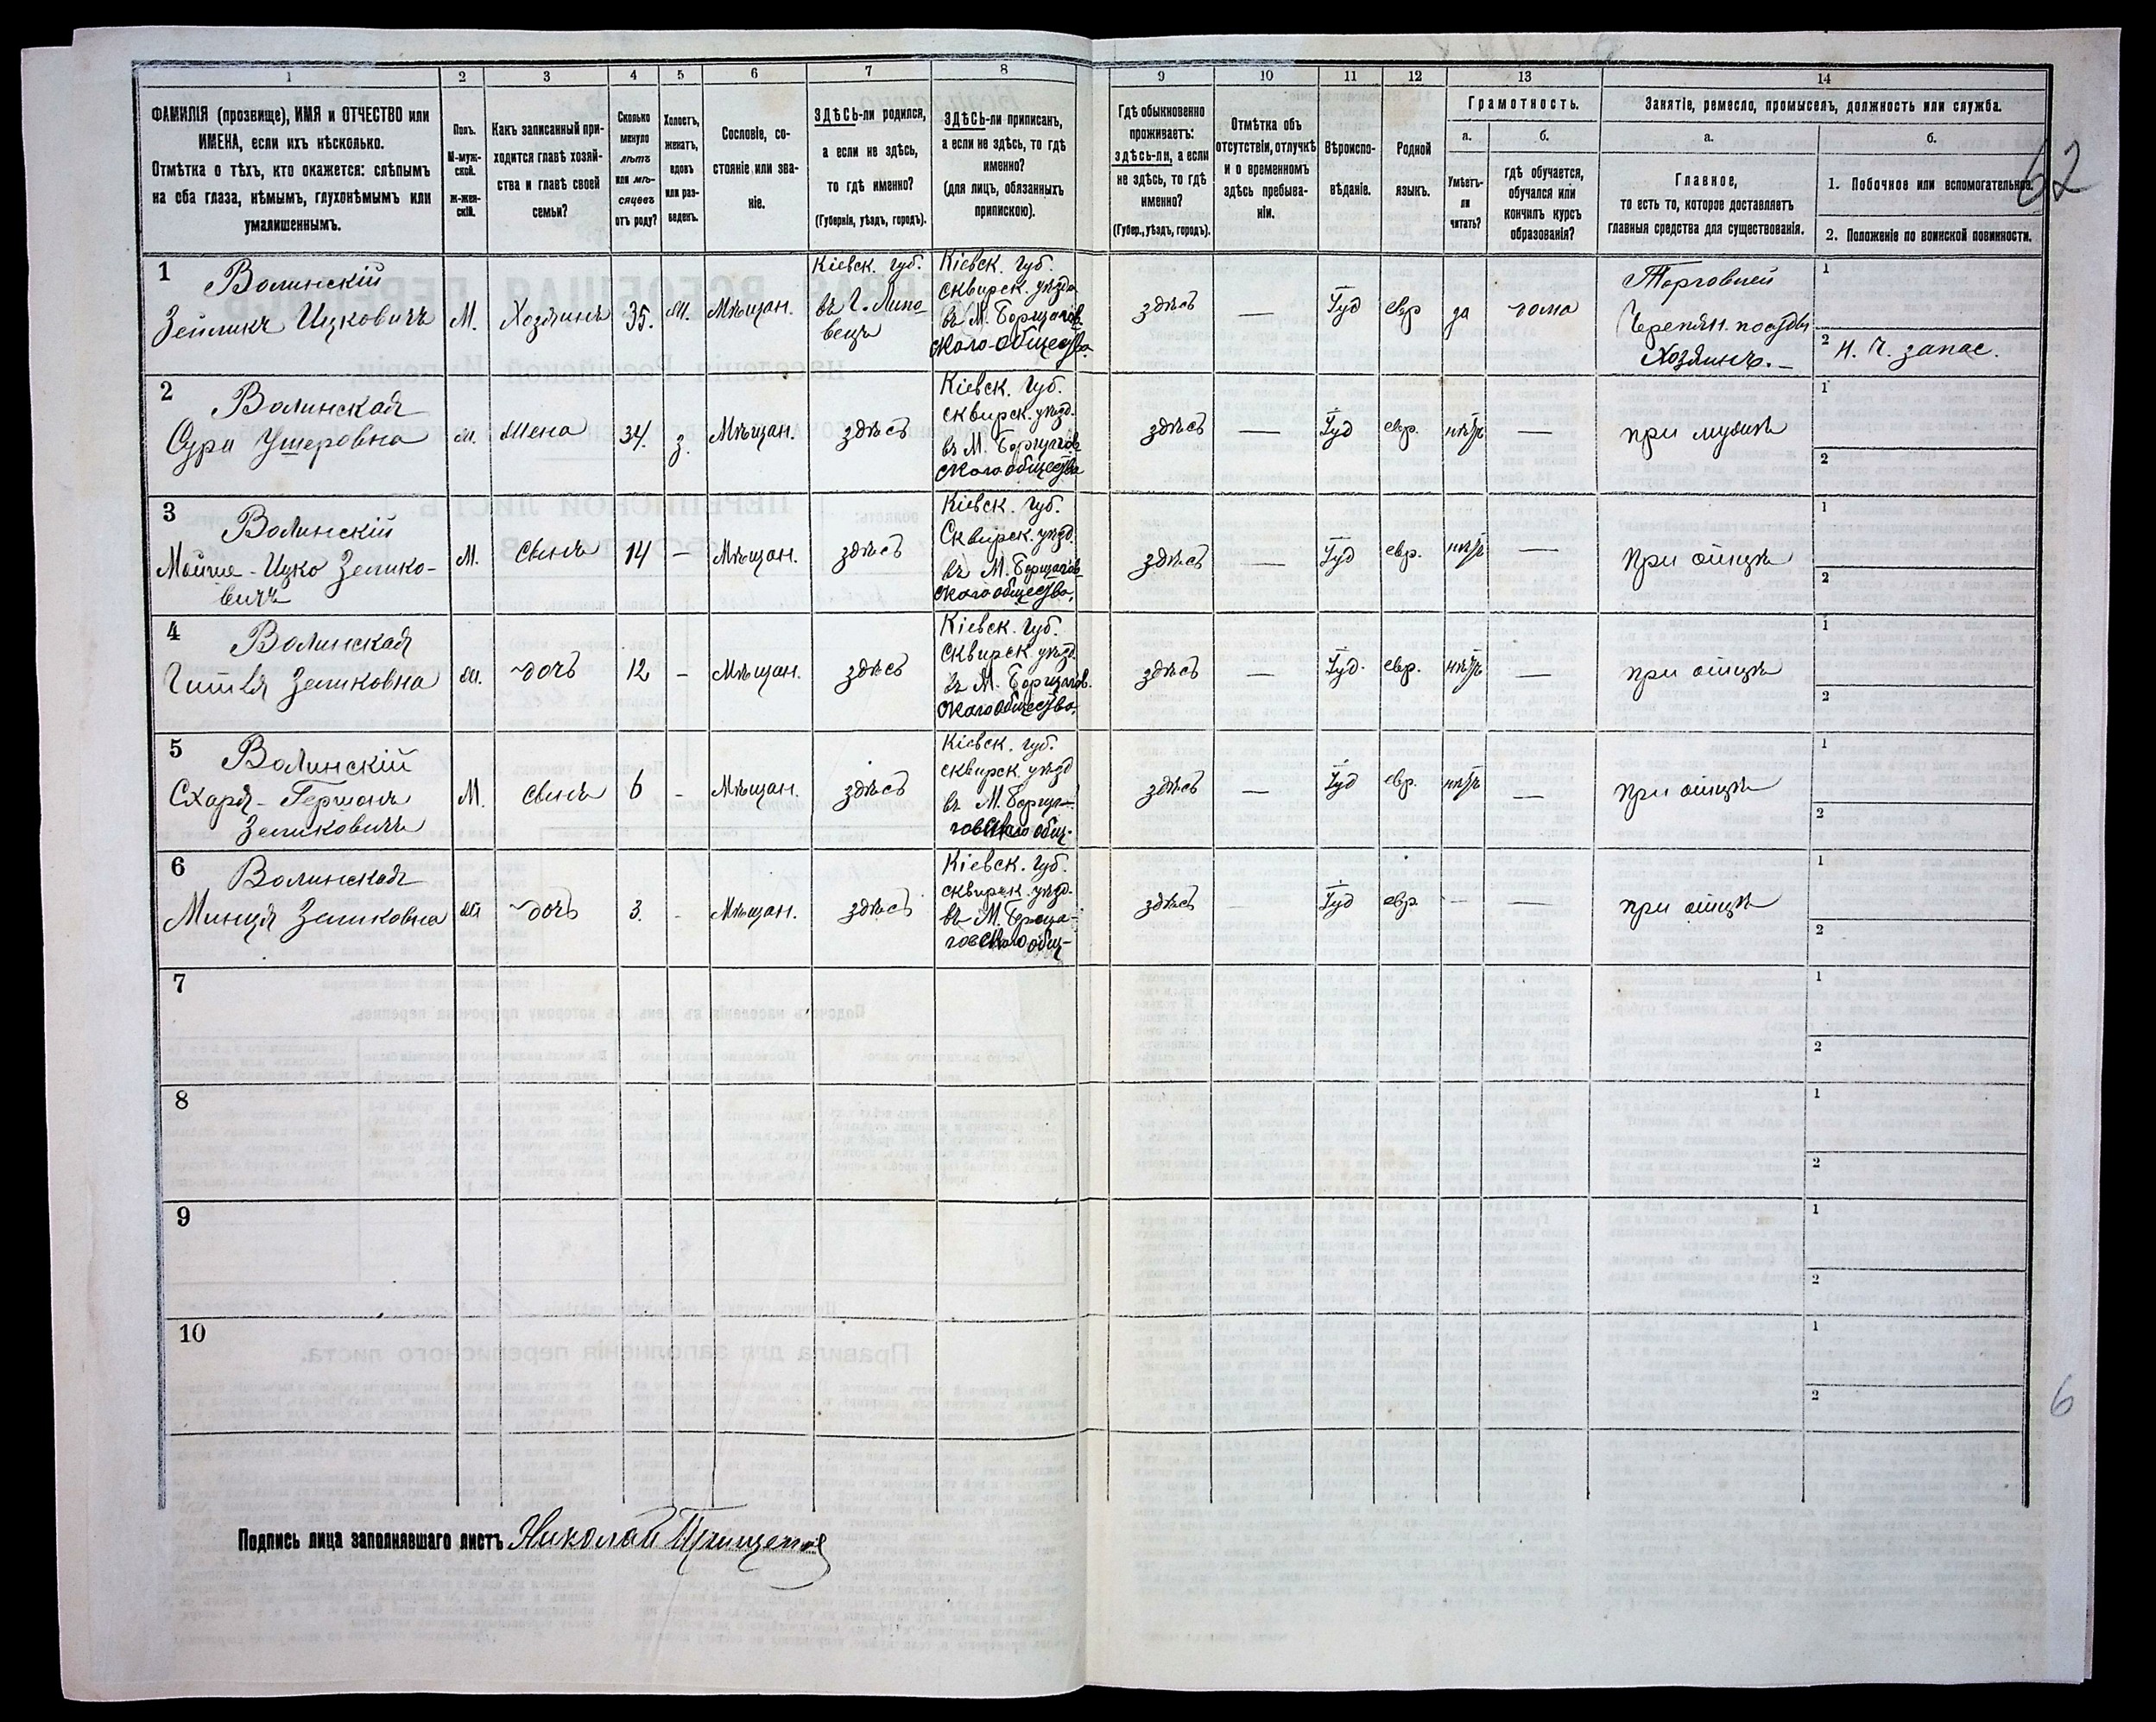 1 2 3 4 5 6 7 8 9 10 11 12 13 14
ФАМИЛІЯ (прозвище), ИМЯ и ОТЧЕСТВО или
ИМЕНА, если ихъ нѣсколько.
Отмѣтка о тѣхъ, кто окажется: слѣпымъ
на оба глаза, нѣмымъ, глухонѣмымъ или
умалишеннымъ.
Полъ.
М-муж-
ской.
Ж-жен-
скій.
Какъ записанный при-
ходится главѣ хозяй-
ства и главѣ своей
семьи?
Сколько
минуло
лѣтъ
или мѣ-
сяцевъ
отъ роду?
Холостъ,
женатъ,
вдовъ
или раз-
веденъ.
Сословіе, со-
стояніе или зва-
ніе.
ЗДѢСЬ-ли родился,
а если не здѣсь,
то гдѣ именно?
(Губернія, уѣздъ, городъ).
ЗДѢСЬ-ли приписанъ,
а если не здѣсь, то гдѣ
именно?
(для лицъ, обязанныхъ
припискою).
Гдѣ обыкновенно
проживаетъ:
здѣсь-ли, а если
не здѣсь, то гдѣ
именно?
(Губер., уѣздъ, городъ).
Отмѣтка объ
отсутствіи, отлучкѣ
и о временномъ
здѣсь пребыва-
ніи.
Вѣроиспо-
вѣданіе.
Родной
языкъ.
Грамотность.
а.
Умѣетъ-
ли
читать?
б.
гдѣ обучается,
обучался или
кончилъ курсъ
образованія?
Занятіе, ремесло, промыселъ, должность или служба.
а.
Главное,
то есть то, которое доставляетъ
главныя средства для существованія.
б.
1. Побочное или вспомогательное.
2. Положеніе по воинской повинности.
62
1
Волинскій
Зейликъ Ицковичъ
М.
Хозяинъ
35.
Мѣщан.
Кіевск. губ.
въ г. Липо-
вецъ
Кіевск. губ.
сквирск. уѣзда
въ М. Борщагов-
скаго общества
здѣсь
—
Іуд
евр
да
дома
Торговлей
Черепян. посуды
Хозяинъ.—
1
2 Н. Ч. запас.
2
Волинская
Сура Ушеровна
ж.
Жена
34.
з.
Мѣщан.
здѣсь
Кіевск. губ.
сквирск. уѣзд.
въ М. Борщагов
скаго общества
здѣсь
—
Іуд
евр.
нѣтъ
—
при мужѣ
1
2
3
Волинскій
Мойше-Ицко Зелико-
вичъ
М.
Свинъ
14
—
Мѣщан.
здѣсь
Кіевск. губ.
Сквирск. уѣзд.
въ М. Борщагов-
скаго общества.
здѣсь
—
Іуд
евр.
нѣтъ
—
при отцѣ
1
2
4
Волинская
Гитля Зеликовна
ж.
дочь
12
—
Мѣщан.
здѣсь
Кіевск. губ.
Сквирск уѣзд.
въ М. Борщагов.
скаго общества.
здѣсь
—
Іуд.
евр.
нѣтъ
—
при отцѣ
1
2
5
Волинскій
Зеликовичъ
М.
свинъ
6
—
Мѣщан.
здѣсь
Кіевск. губ.
сквирск. уѣзд
въ М. Борща-
говскаго общ-
здѣсь
—
Іуд
евр.
нѣтъ
—
при отцѣ
1
2
6
Волинская
Минця Зеликовна
ж
дочь
3.
-
Мѣщан.
здѣсь
Кіевск. губ.
сквирск. уѣзд.
въ М. Борща-
говскаго общ-
здѣсь
—
Іуд
евр
—
—
при отцѣ
1
2
7
1
2
8
1
2
9
1
2
10
1
2
6
Подпись лица заполнявшаго листъ Николай